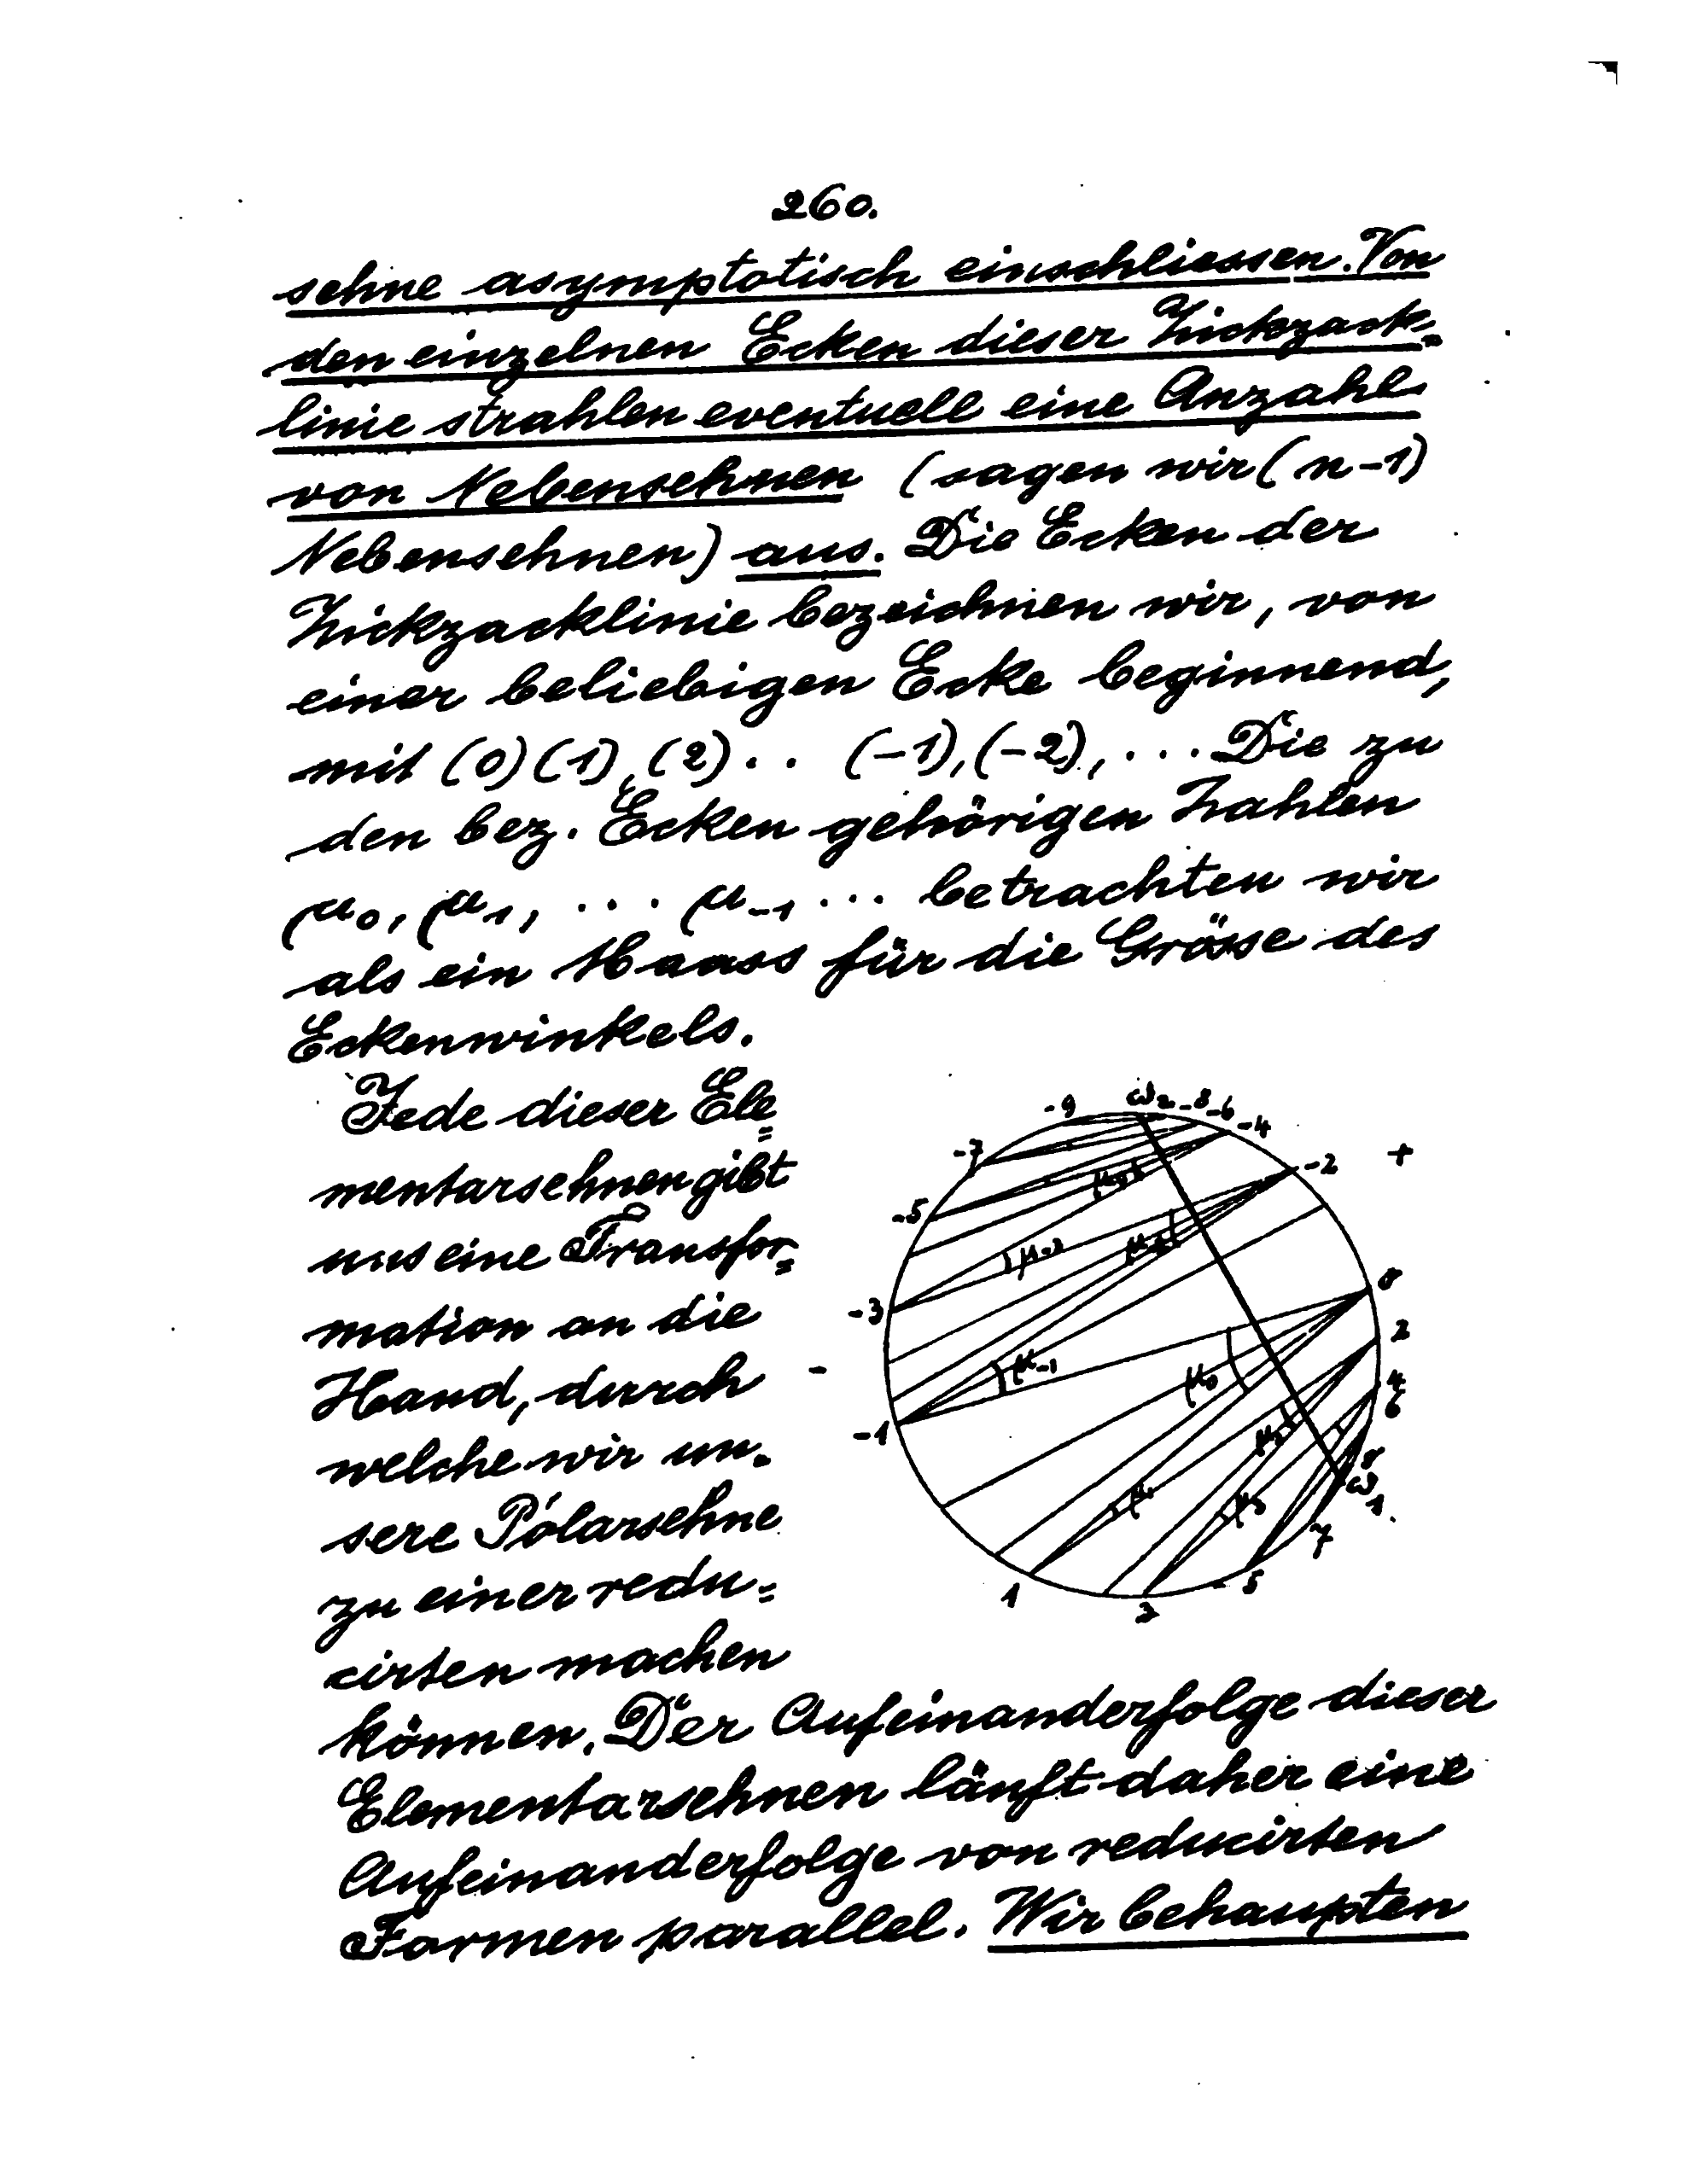 260.
sehne asymptotisch einschliessen. Von
den einzelnen Ecken dieser Zickzack-
linie strahlen eventuell eine Anzahl
von Nebensehnen (sagen wir (n-1)
Nebensehnen) aus. Die Ecken der
Zickzacklinie bezeichnen wir, von
einer beliebigen Ecke beginnend,
mit (0) (1), (2) . . (-1), (-2), . . . Die zu
den bez. Ecken gehörigen Zahlen
μ₀, μ₁, . . . μ₋₁ . . . betrachten wir
als ein Maass für die Grösse des
Eckenwinkels.
Jede dieser Ele=
mentarsehnen gibt
uns eine Transfor=
mation an die
Hand, durch
welche wir un-
sere Polarsehne
zu einer redu=
cirten machen
können. Der Aufeinanderfolge dieser
Elementarsehnen läuft daher eine
Aufeinanderfolge von reducirten
Formen parallel. Wir behaupten
-9 ω₂ -8 -6 -4
-7 -2 +
-5
μ₋₂
-3 0
2
- μ₋₁ μ₀ 4
6
-1
8
ω₁
7
1 3 5